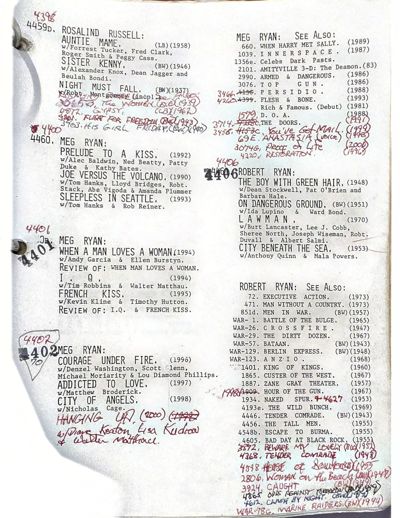 4396
4459D. ROSALIND RUSSELL:
AUNTIE MAME. (LB)(1958)
w/Forrest Tucker, Fred Clark,
Roger Smith & Peggy Cass.
SISTER KENNY. (BW)(1946)
w/Alexander Knox, Dean Jagger and
Beulah Bondi.
NIGHT MUST FALL.
w/Robt. Mont
THE WOMEN
FLIGHT FOR FREEDOM
4400
HIS GIRL FRIDAY
4460. MEG RYAN:
PRELUDE TO A KISS. (1992)
w/Alec Baldwin, Ned Beatty, Patty
Duke & Kathy Bates.
JOE VERSUS THE VOLCANO. (1990)
w/Tom Hanks, Lloyd Bridges, Robt.
Stack, Abe Vigoda & Amanda Plummer
SLEEPLESS IN SEATTLE. (1993)
w/Tom Hanks & Rob Reiner.
4401
4401
MEG RYAN:
WHEN A MAN LOVES A WOMAN (1994)
w/Andy Garcia & Ellen Burstyn.
REVIEW OF: WHEN MAN LOVES A WOMAN.
I . Q . (1994)
w/Tim Robbins & Walter Matthau.
FRENCH KISS. (1995)
w/Kevin Kline & Timothy Hutton.
REVIEW OF: I.Q. & FRENCH KISS.
4402
4402
MEG RYAN:
COURAGE UNDER FIRE. (1996)
w/Denzel Washington, Scott Glenn,
Michael Moriarity & Lou Diamond Phillips.
ADDICTED TO LOVE. (1997)
w/Matthew Broderick.
CITY OF ANGELS. (1998)
w/Nicholas Cage.
HANGING UP. (2000)
w/Diane Keaton Lisa Kudrow
& Walter Matthau.
MEG RYAN: SEE ALSO:
660. WHEN HARRY MET SALLY. (1989)
1039. INNERSPACE. (1987)
1356e. Celebs Dark Pasts.
2101. AMITYVILLE 3-D: The Deamon.(83)
2990. ARMED & DANGEROUS. (1986)
3076. TOP GUN. (1986)
PRESIDIO. (1988)
FLESH & BONE. (1993)
Rich & Famous. (Debut) (1981)
D. O. A. (1988)
3714. THE DOORS. (1991)
3458. YOU'VE GOT MAIL.
ANASTASIA
3074G. PROOF OF LIFE (2000)
4220. RESTORATION
4406
4406 ROBERT RYAN:
THE BOY WITH GREEN HAIR. (1948)
w/Dean Stockwell, Pat O'Brien and
Barbara Hale.
ON DANGEROUS GROUND. (BW)(1951)
w/Ida Lupino & Ward Bond.
LAWMAN. (1970)
w/Burt Lancaster, Lee J. Cobb,
Sheree North, Joseph Wiseman, Robt.
Duvall & Albert Salmi.
CITY BENEATH THE SEA. (1953)
w/Anthony Quinn & Mala Powers.
ROBERT RYAN: SEE ALSO:
72. EXECUTIVE ACTION. (1973)
471. MAN WITHOUT A COUNTRY. (1973)
851d. MEN IN WAR. (BW)(1957)
WAR- 1. BATTLE OF THE BULGE. (1965)
WAR-26. CROSSFIRE. (1947)
WAR-29. THE DIRTY DOZEN. (1967)
WAR-57. BATAAN. (BW)(1943)
WAR-129. BERLIN EXPRESS. (BW)(1948)
WAR-123. ANZIO. (1968)
1401. KING OF KINGS. (1960)
1865. CUSTER OF THE WEST. (1967)
1887. ZANE GRAY THEATER. (1957)
HOUR OF THE GUN. (1967)
1934. NAKED SPUR. 4627 (1953)
4193e. THE WILD BUNCH. (1969)
4446. TENDER COMRADE. (BW)(1943)
4456. THE TALL MEN. (1955)
4548b. ESCAPE TO BURMA. (1955)
4605. BAD DAY AT BLACK ROCK. (1955)
BEWARE MY LOVELY (BW)
TENDER COMRADE
4358 HOUSE OF BAMBOO (1955)
2806. WOMAN ON THE BEACH
3924. CAUGHT
ODDS AGAINST
CLASH BY NIGHT
WAR-78G. MARINE RAIDERS (BW)(1944)